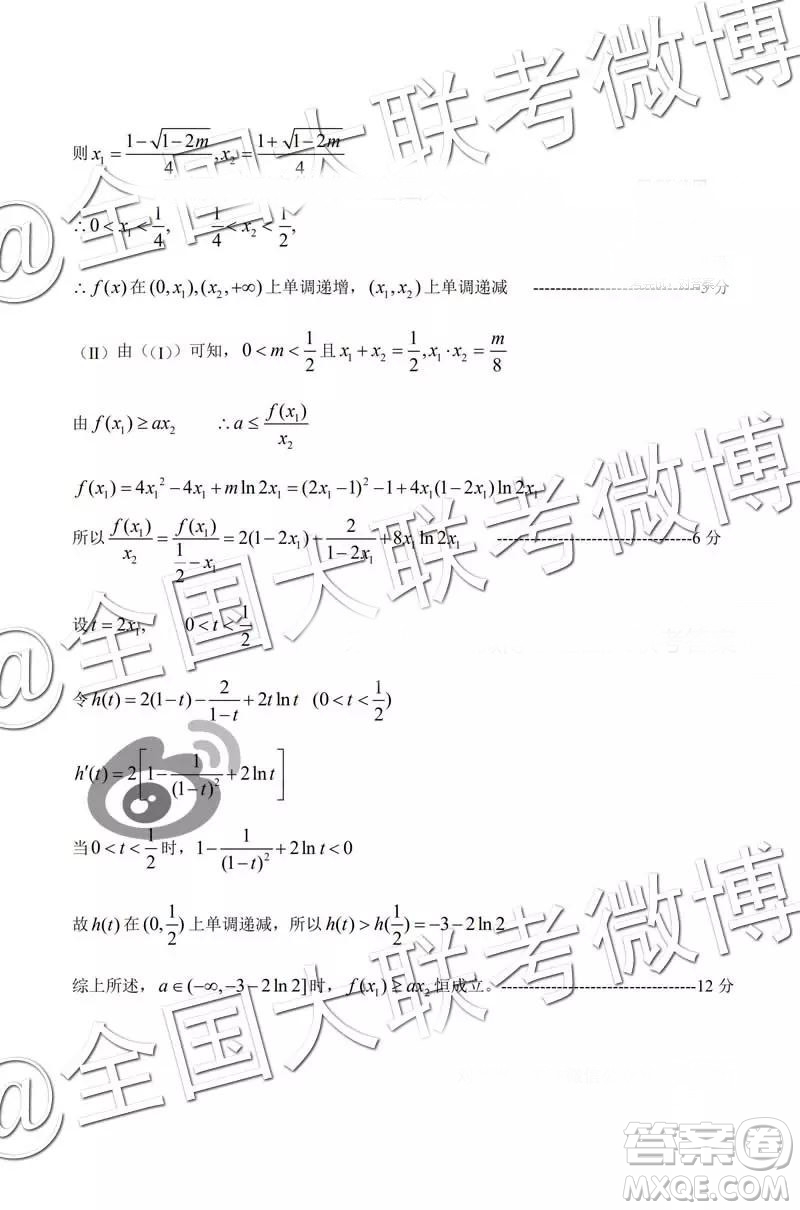 则 x₁ = (1-√(1-2m))/4, x₂ = (1+√(1-2m))/4
∴ 0 < x₁ < 1/4, 1/4 < x₂ < 1/2,
∴ f(x) 在 (0, x₁), (x₂, +∞) 上单调递增， (x₁, x₂) 上单调递减 ------------------------------5分
(II) 由（(I)）可知， 0 < m < 1/2 且 x₁ + x₂ = 1/2, x₁ · x₂ = m/8
由 f(x₁) ≥ ax₂ ∴ a ≤ f(x₁)/x₂
f(x₁) = 4x₁² - 4x₁ + m ln 2x₁ = (2x₁ - 1)² - 1 + 4x₁(1 - 2x₁) ln 2x₁
所以 f(x₁)/x₂ = f(x₁)/(1/2 - x₁) = 2(1 - 2x₁) - 2/(1 - 2x₁) + 8x₁ ln 2x₁ -----------------------------------6 分
设 t = 2x₁, 0 < t < 1/2
令 h(t) = 2(1 - t) - 2/(1 - t) + 2t ln t (0 < t < 1/2)
h′(t) = 2[1 - 1/(1 - t)² + 2 ln t]
当 0 < t < 1/2 时， 1 - 1/(1 - t)² + 2 ln t < 0
故 h(t) 在 (0, 1/2) 上单调递减，所以 h(t) > h(1/2) = -3 - 2 ln 2
综上所述， a ∈ (-∞, -3 - 2 ln 2] 时， f(x₁) ≥ ax₂ 恒成立。-----------------------------------12 分
@全国大联考微博
@全国大联考微博
@全国大联考微博
答案卷
MXQE.COM